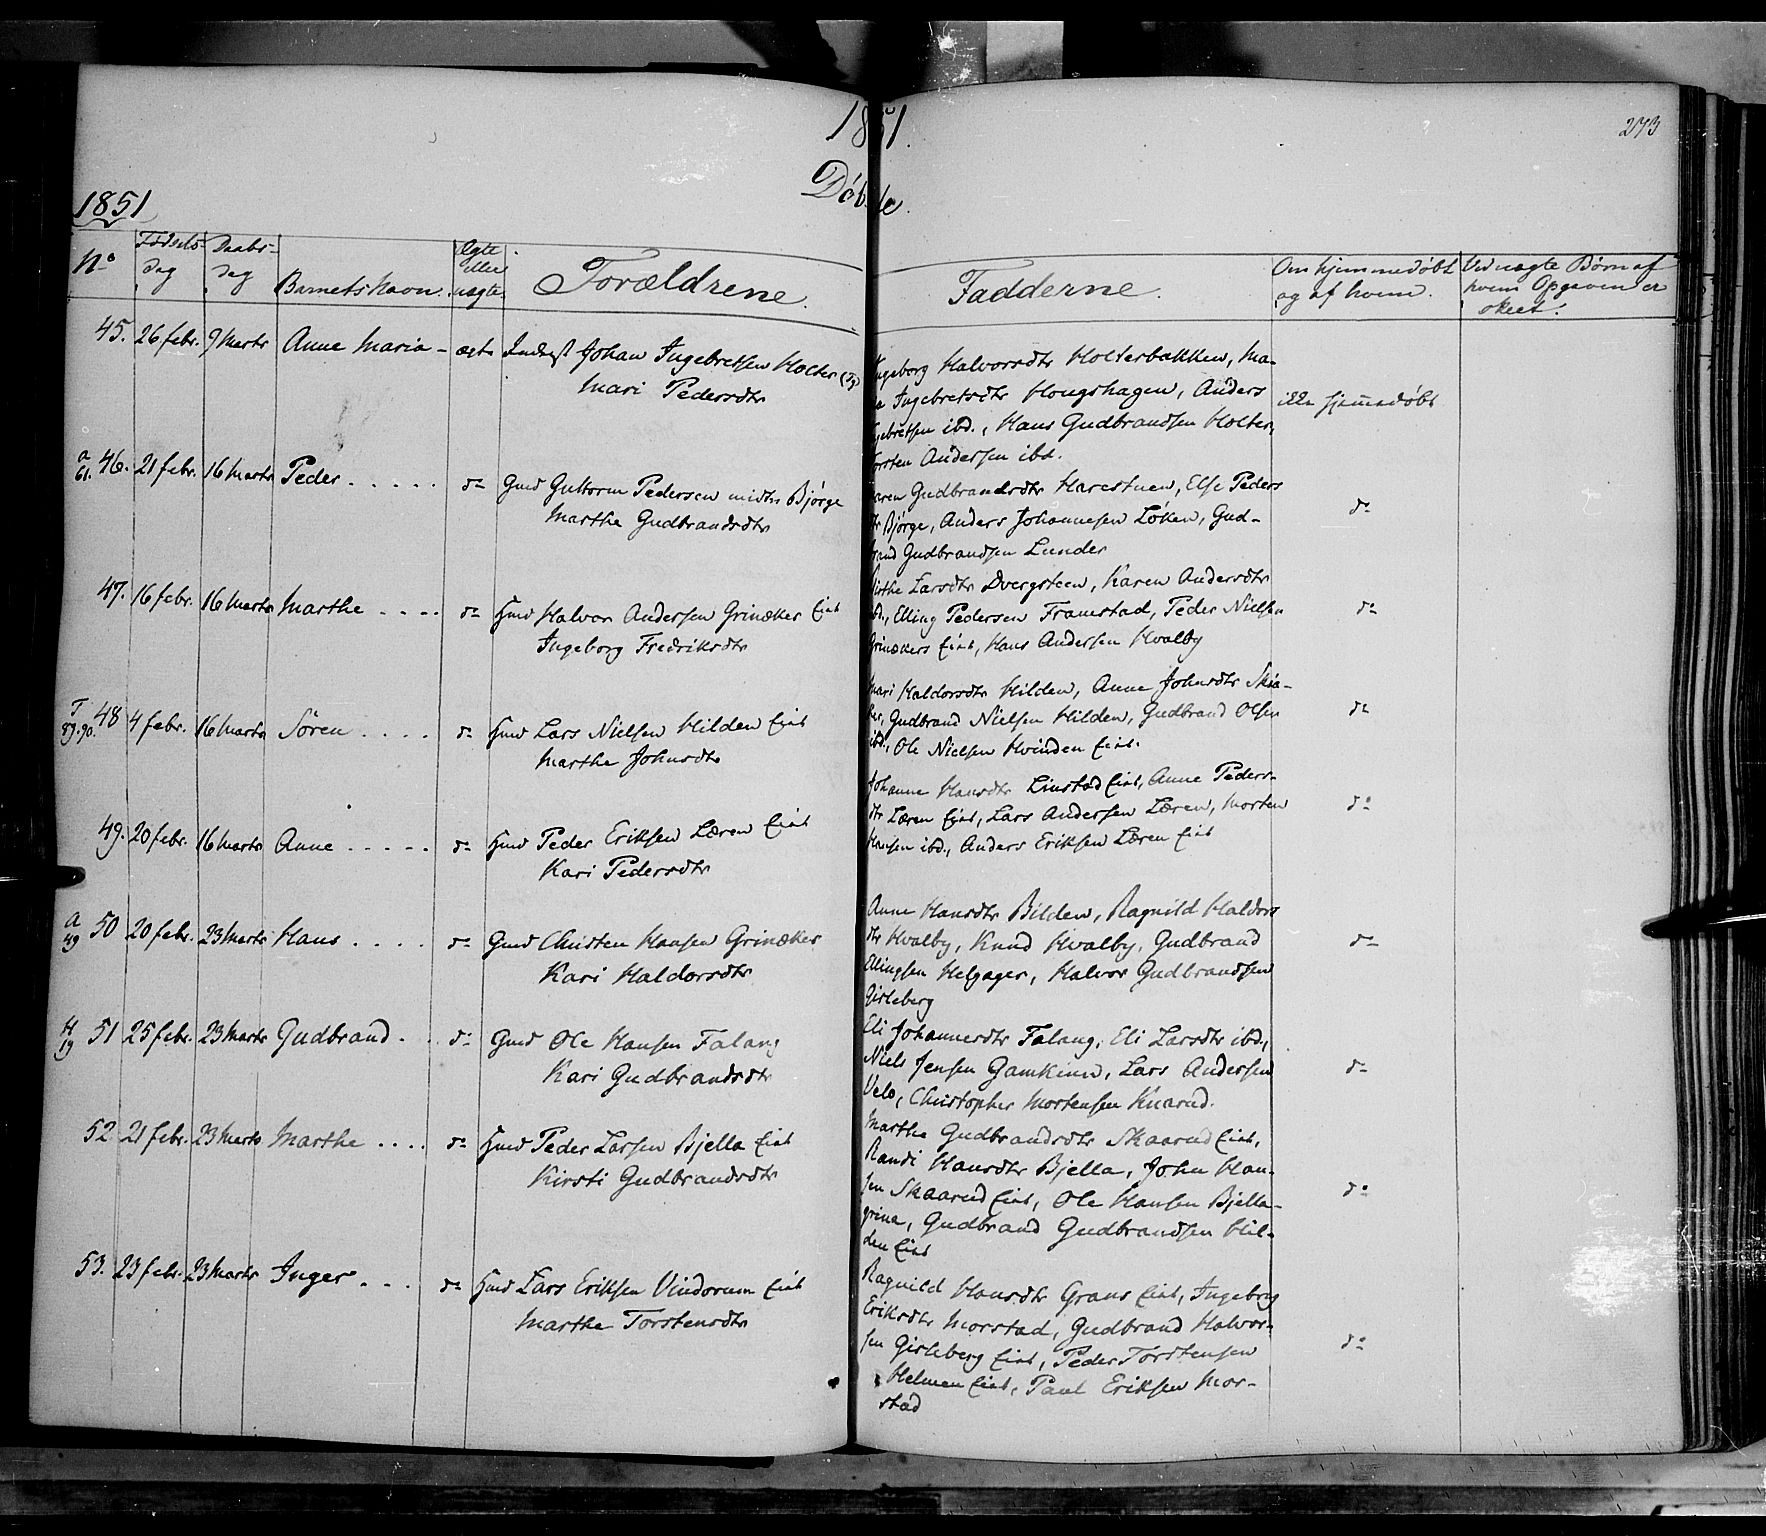 1851.
273
Döbte.
1851
No
Fødsels-
dag
Daabs-
dag
Barnets Navn.
Ægte
eller
uægte.
Forældrene.
Fadderne.
Om hjemmedøbt
og af hvem.
Ved uægte Børn af
hvem Opgaven er
skeet.
45. 26 febr. 9 Marts Anne Maria - ægte Indst Johan Ingebretsen Holter
Mari Pedersdtr
Ingeborg Halvorsdtr Holterbakken, Ma-
Ingebretsdtr Hongshagen, Anders
Ingebretsen ibd., Hans Gudbrandsen Holter,
Torsten Andersen ibd.
ikke hjemmedøbt
a
61. 46. 21 febr. 16 Marts Peder ..... do Gmd Guttorm Pedersen midtre Bjørge
Marthe Gudbrandsdtr
Karen Gudbrandsdtr Harestuen, Else Peders
dtr Bjørge, Anders Johannesen Løken, Gud-
brand Gudbrandsen Lunder
do
47. 16 febr. 16 Marts Marthe .... do Hmd Halvor Andersen Grinaker Eiet
Ingeborg Fredriksdtr
Larsdtr Dvergsteen, Karen Andersdtr
ibd., Elling Pedersen Framstad, Peder Nielsen
Grinakers Eiet, Hans Andersen Hvalby
do
T
89.90. 48 4 febr. 16 Marts Sören .... do Hmd Lars Nielsen Hilden Eiet
Marthe Johnsdtr
Mari Haldorsdtr Hilden, Anne Johnsdtr Skia-
ker, Gudbrand Nielsen Hilden, Gudbrand Olsen
ibd., Ole Nielsen Hvinden Eiet.
do
49. 20 febr. 16 Marts Anne ..... do Hmd Peder Eriksen Læren Eiet
Kari Pedersdtr
Johanne Hansdtr Linstad Eiet, Anne Peders-
dtr Læren Eiet, Lars Andersen Læren, Morten
Hansen ibd., Anders Eriksen Læren Eiet
do
A
49 50 20 febr. 23 Marts Hans .... do Gmd Christen Hansen Grinaker
Kari Haldorsdtr
Anne Hansdtr Bilden, Ragnild Haldors
dtr Hvalby, Knud Hvalby, Gudbrand
Ellingsen Helgager, Halvor Gudbrandsen
Gisleberg
do
H
19 51 25 febr. 23 Marts Gudbrand . . do Gmd Ole Hansen Falang
Kari Gudbrandsdtr
Eli Johannesdtr Falang, Eli Larsdtr ibd.,
Niels Jensen Gamkinn, Lars Andersen
Velo, Christopher Mortensen Knarud.
do
52 21 febr. 23 Marts Marthe .... do Hmd Peder Larsen Bjella Eiet
Kirsti Gudbrandsdtr
Marthe Gudbrandsdtr Skaarud Eiet,
Randi Hansdtr Bjella, John Han-
sen Skaarud Eiet, Ole Hansen Bjella-
grina, Gudbrand Gudbrandsen Hil-
den Eiet
do
53. 23 febr. 23 Marts Inger ... do Hmd Lars Eriksen Vindorum Eiet
Marthe Torstensdtr
Ragnild Hansdtr Grans Eiet, Ingeborg
Eriksdtr Morstad, Gudbrand Halvor-
sen Gisleberg Eiet, Peder Torstensen
Helmen Eiet, Paul Eriksen Mor-
stad
do